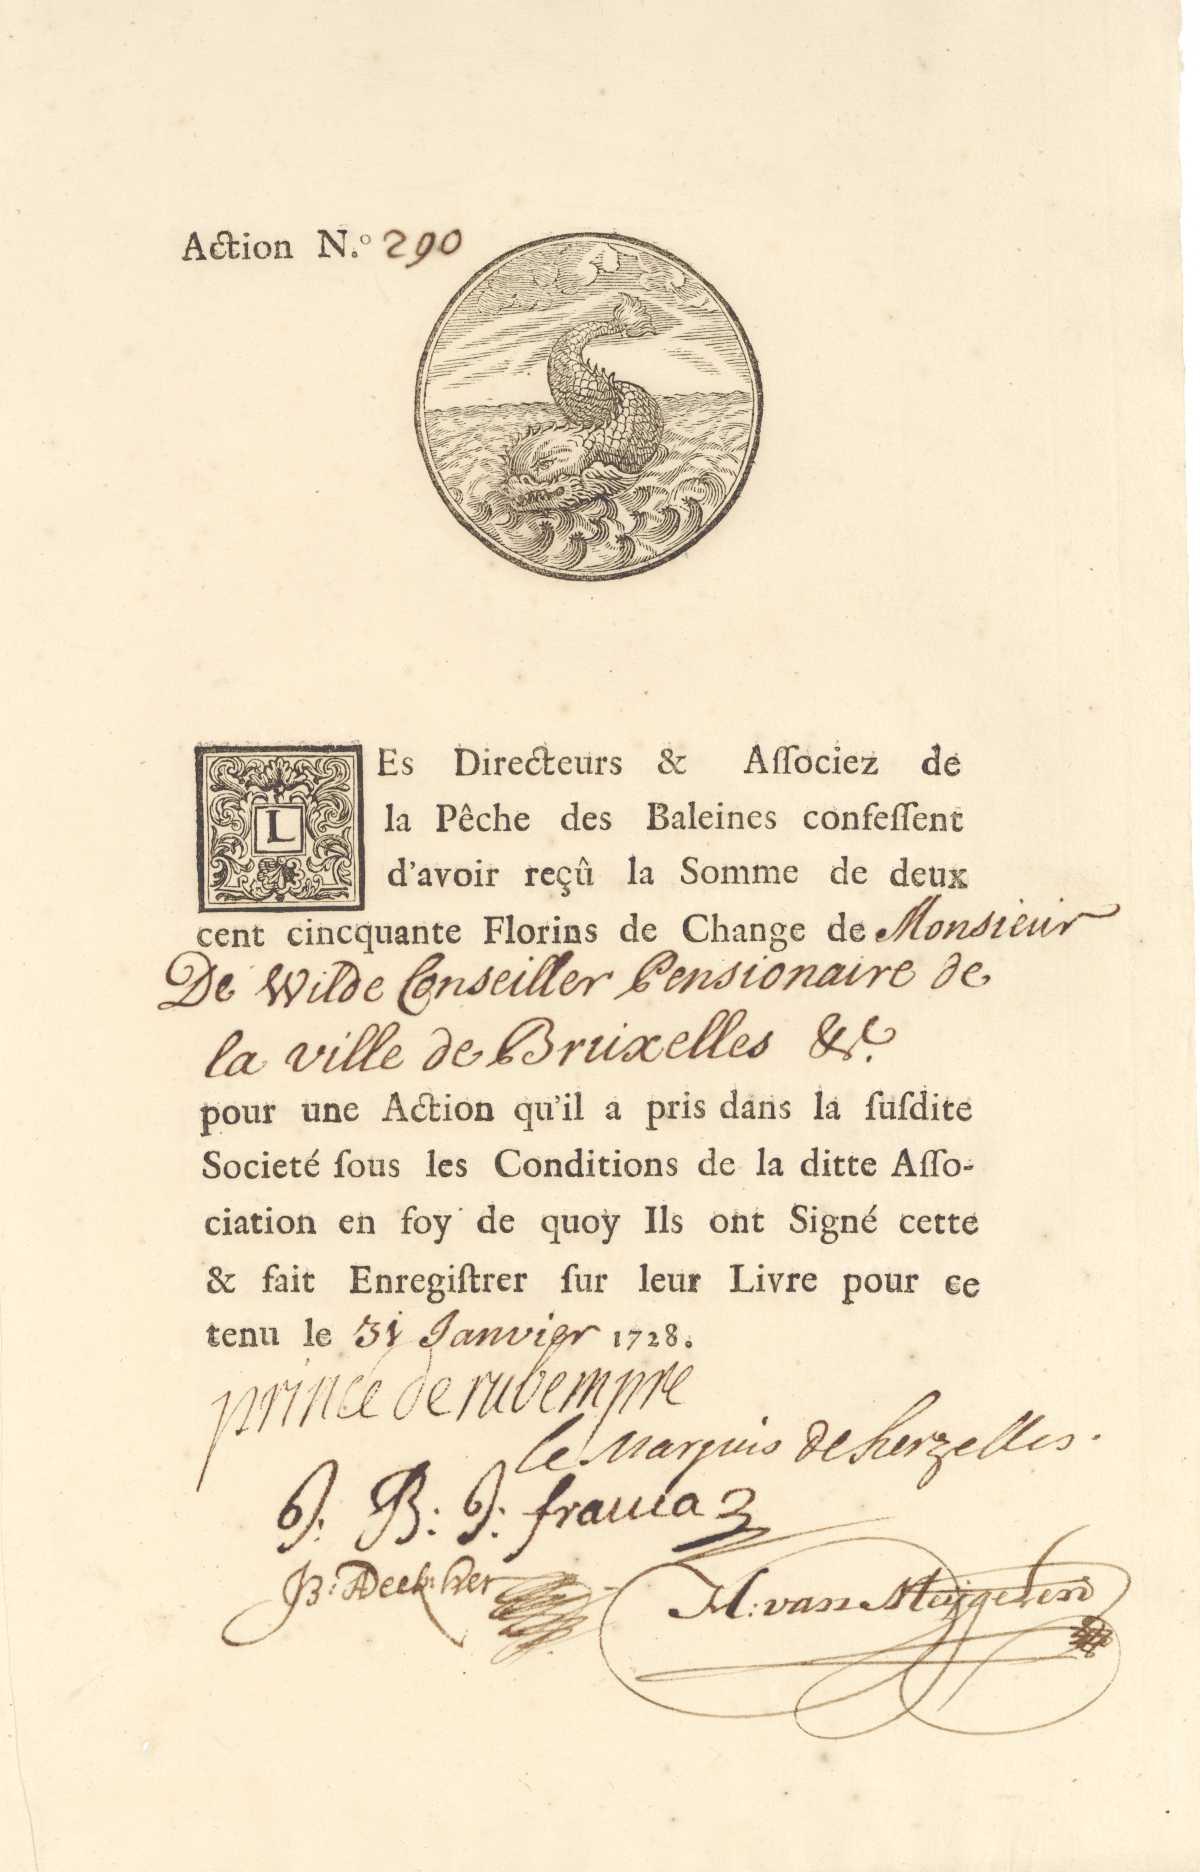 Action N.º 290
LEs Directeurs & Aſſociez de
la Pêche des Baleines confeſſent
d'avoir reçû la Somme de deux
cent cincquante Florins de Change de Monsieur
De Wilde Conseiller Pensionaire de
la ville de Bruxelles &c.
pour une Action qu'il a pris dans la ſuſdite
Societé ſous les Conditions de la ditte Aſſo-
ciation en foy de quoy Ils ont Signé cette
& fait Enregiſtrer ſur leur Livre pour ce
tenu le 31 Janvier 1728.
prince de rubempre
le Marquis de herzelles.
J: B: J: francq
B: De
H: van